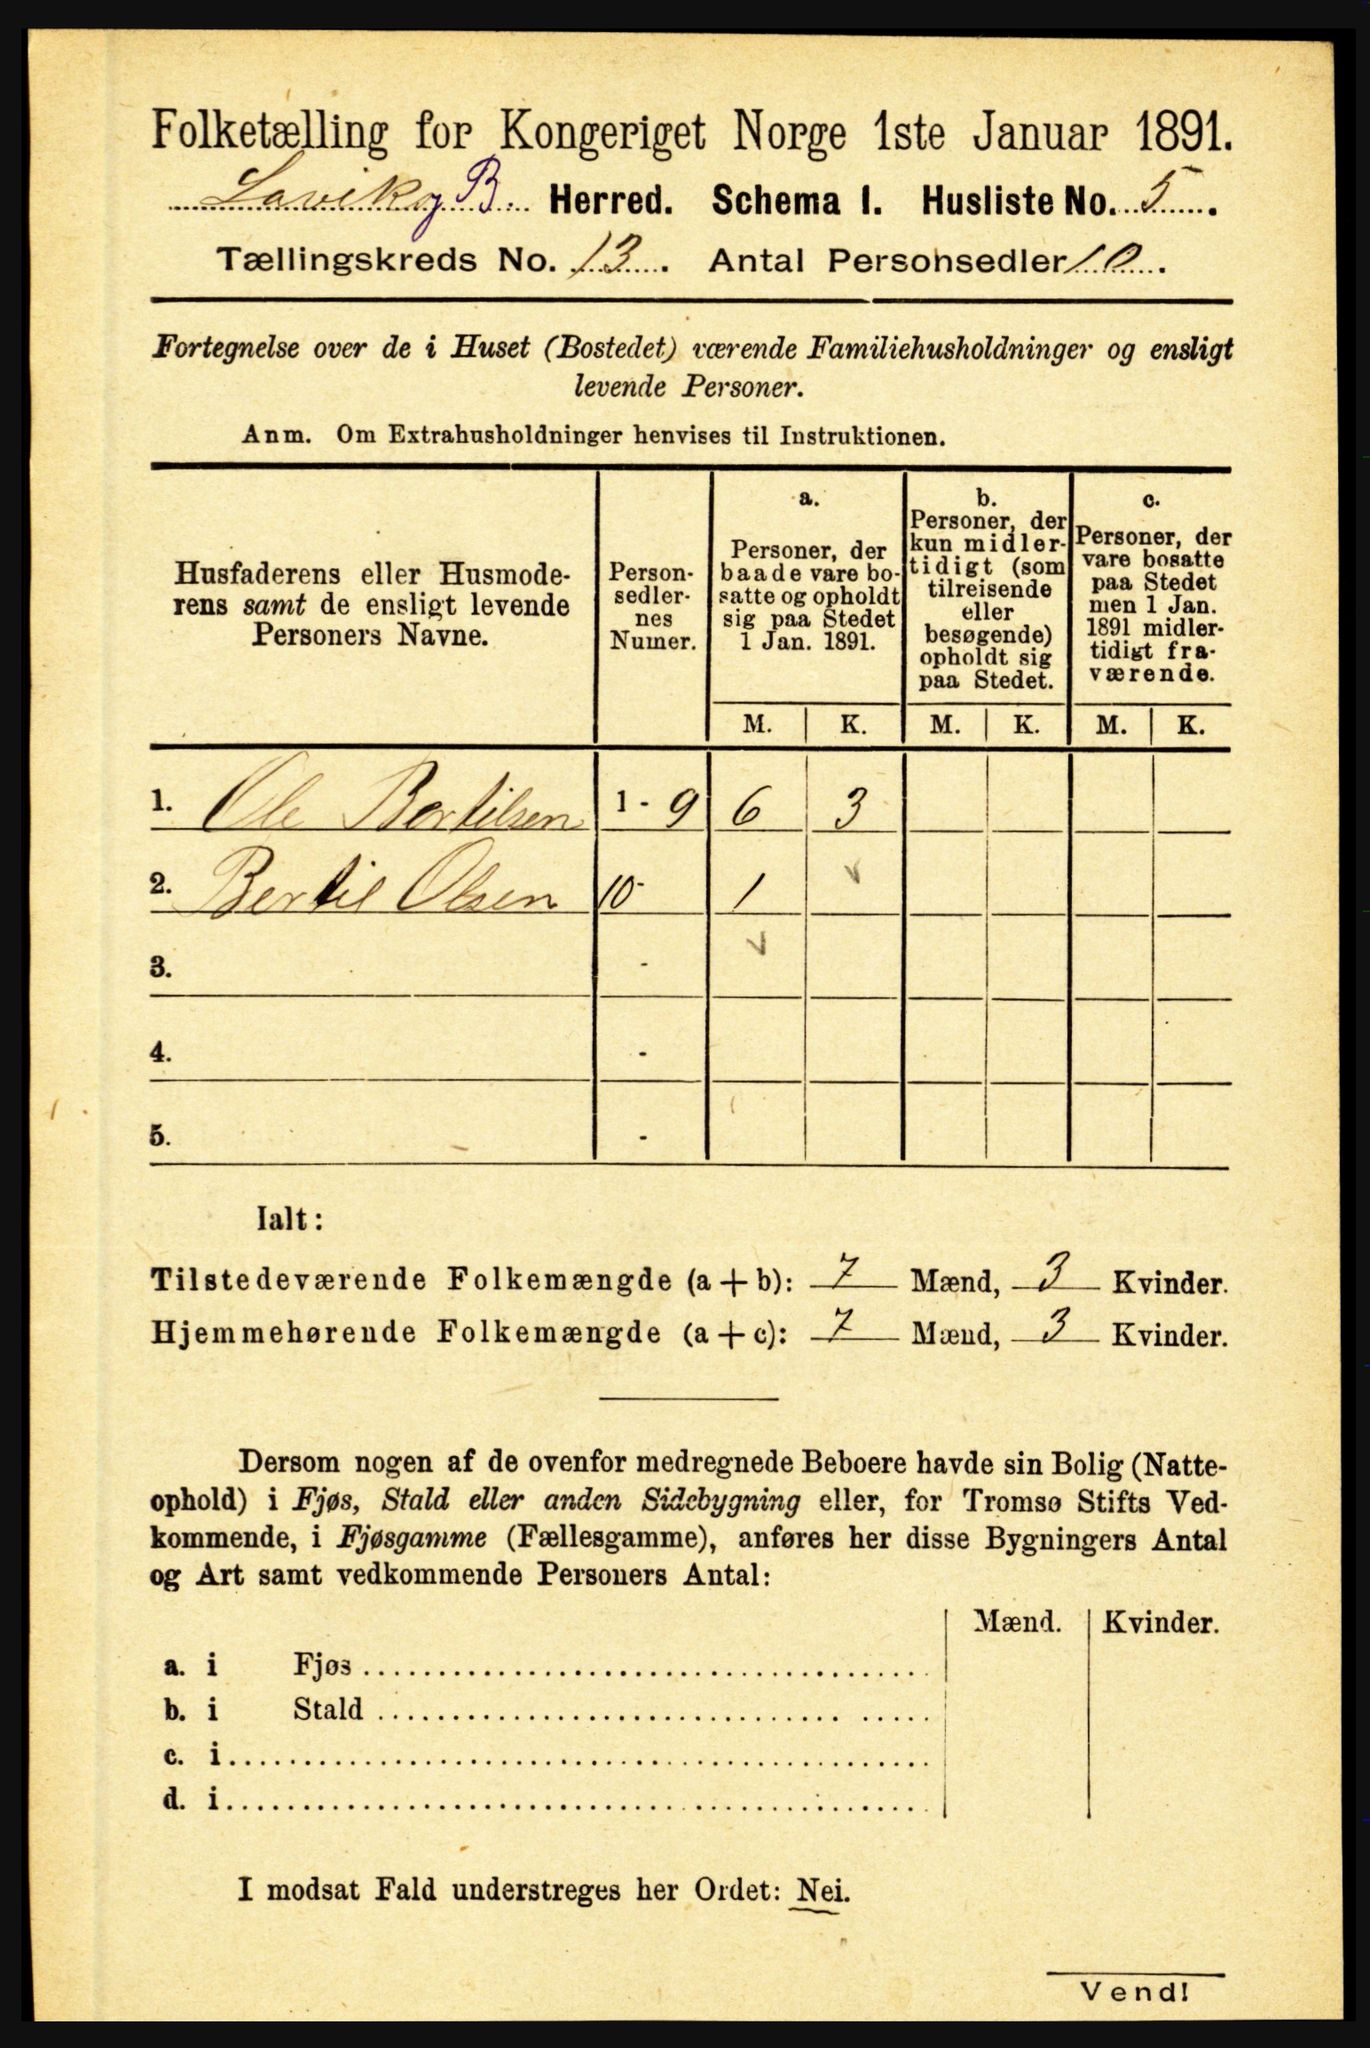 Folketælling for Kongeriget Norge 1ste Januar 1891.
Lavik og B. Herred. Schema I. Husliste No. 5.
Tællingskreds No. 13. Antal Personsedler 10.
Fortegnelse over de i Huset (Bostedet) værende Familiehusholdninger og ensligt
levende Personer.
Anm. Om Extrahusholdninger henvises til Instruktionen.
Husfaderens eller Husmode-
rens samt de ensligt levende
Personers Navne.
Person-
sedler-
nes
Numer.
a.
Personer, der
baade vare bo-
satte og opholdt
sig paa Stedet
1 Jan. 1891.
b.
Personer, der
kun midler-
tidigt (som
tilreisende
eller
besøgende)
opholdt sig
paa Stedet.
c.
Personer, der
vare bosatte
paa Stedet
men 1 Jan.
1891 midler-
tidigt fra-
værende.
M. K. M. K. M. K.
1. Ole Bertilsen 1 - 9 6 3
2. Bertil Olsen 10 - 1
3. -
4. -
5. -
Ialt:
Tilstedeværende Folkemængde (a + b): 7 Mænd, 3 Kvinder.
Hjemmehørende Folkemængde (a + c): 7 Mænd, 3 Kvinder.
Dersom nogen af de ovenfor medregnede Beboere havde sin Bolig (Natte-
ophold) i Fjøs, Stald eller anden Sidebygning eller, for Tromsø Stifts Ved-
kommende, i Fjøsgamme (Fællesgamme), anføres her disse Bygningers Antal
og Art samt vedkommende Personers Antal:
Mænd. Kvinder.
a. i Fjøs
b. i Stald
c. i
d. i
I modsat Fald understreges her Ordet: Nei.
Vend!